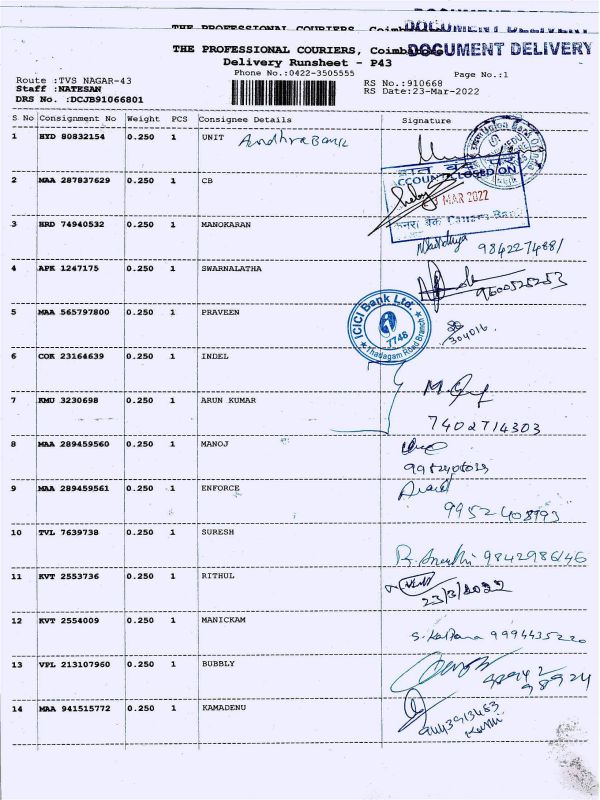 DOCUMENT DELIVERY
THE PROFESSIONAL COURIERS, Coimb
THE PROFESSIONAL COURIERS, Coimb
DOCUMENT DELIVERY
Delivery Runsheet - P43
Phone No.:0422-3505555
Page No.:1
Route :TVS NAGAR-43
RS No.:910668
Staff :NATESAN
RS Date:23-Mar-2022
DRS No. :DCJB91066801
S No Consignment No Weight PCS Consignee Details Signature
1 HYD 80832154 0.250 1 UNIT Andhra Bank
Union Bank Of
2 MAA 287837629 0.250 1 CB
ACCOUNT CLOSED ON
MAR 2022
केनरा बैंक Canara Bank
3 HRD 74940532 0.250 1 MANOKARAN
9842274881
4 APK 1247175 0.250 1 SWARNALATHA
9600525253
5 MAA 565797800 0.250 1 PRAVEEN
ICICI Bank Ltd.
7746
Thadagam Road Branch
304016
6 COK 23164639 0.250 1 INDEL
7 KMU 3230698 0.250 1 ARUN KUMAR
7402714303
8 MAA 289459560 0.250 1 MANOJ
9 MAA 289459561 0.250 1 ENFORCE
10 TVL 7639738 0.250 1 SURESH
9842986146
11 KVT 2553736 0.250 1 RITHUL
23/3/2022
12 KVT 2554009 0.250 1 MANICKAM
S. Kalpana 9994435220
13 VPL 213107960 0.250 1 BUBBLY
14 MAA 941515772 0.250 1 KAMADENU
9443913483